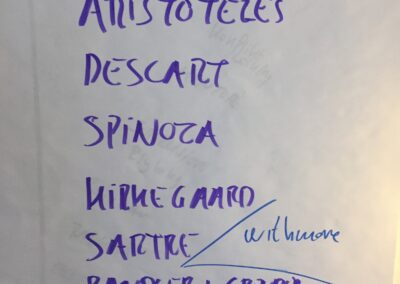 ARISTOTELES
DESCART
SPINOZA
KIRKEGAARD
SARTRE
withmore